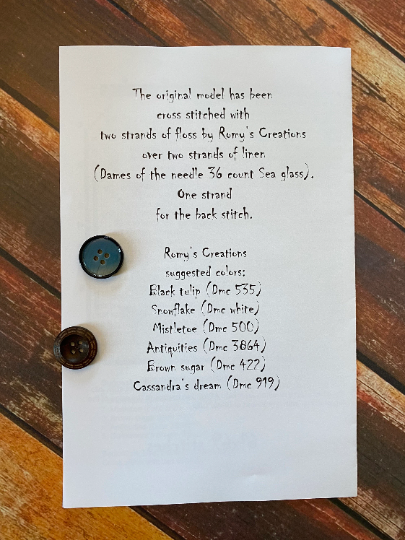 The original model has been
cross stitched with
two strands of floss by Romy's Creations
over two strands of linen
(Dames of the needle 36 count Sea glass).
One strand
for the back stitch.
Romy's Creations
suggested colors:
Black tulip (Dmc 535)
Snowflake (Dmc white)
Mistletoe (Dmc 500)
Antiquities (Dmc 3864)
Brown sugar (Dmc 422)
Cassandra's dream (Dmc 919)